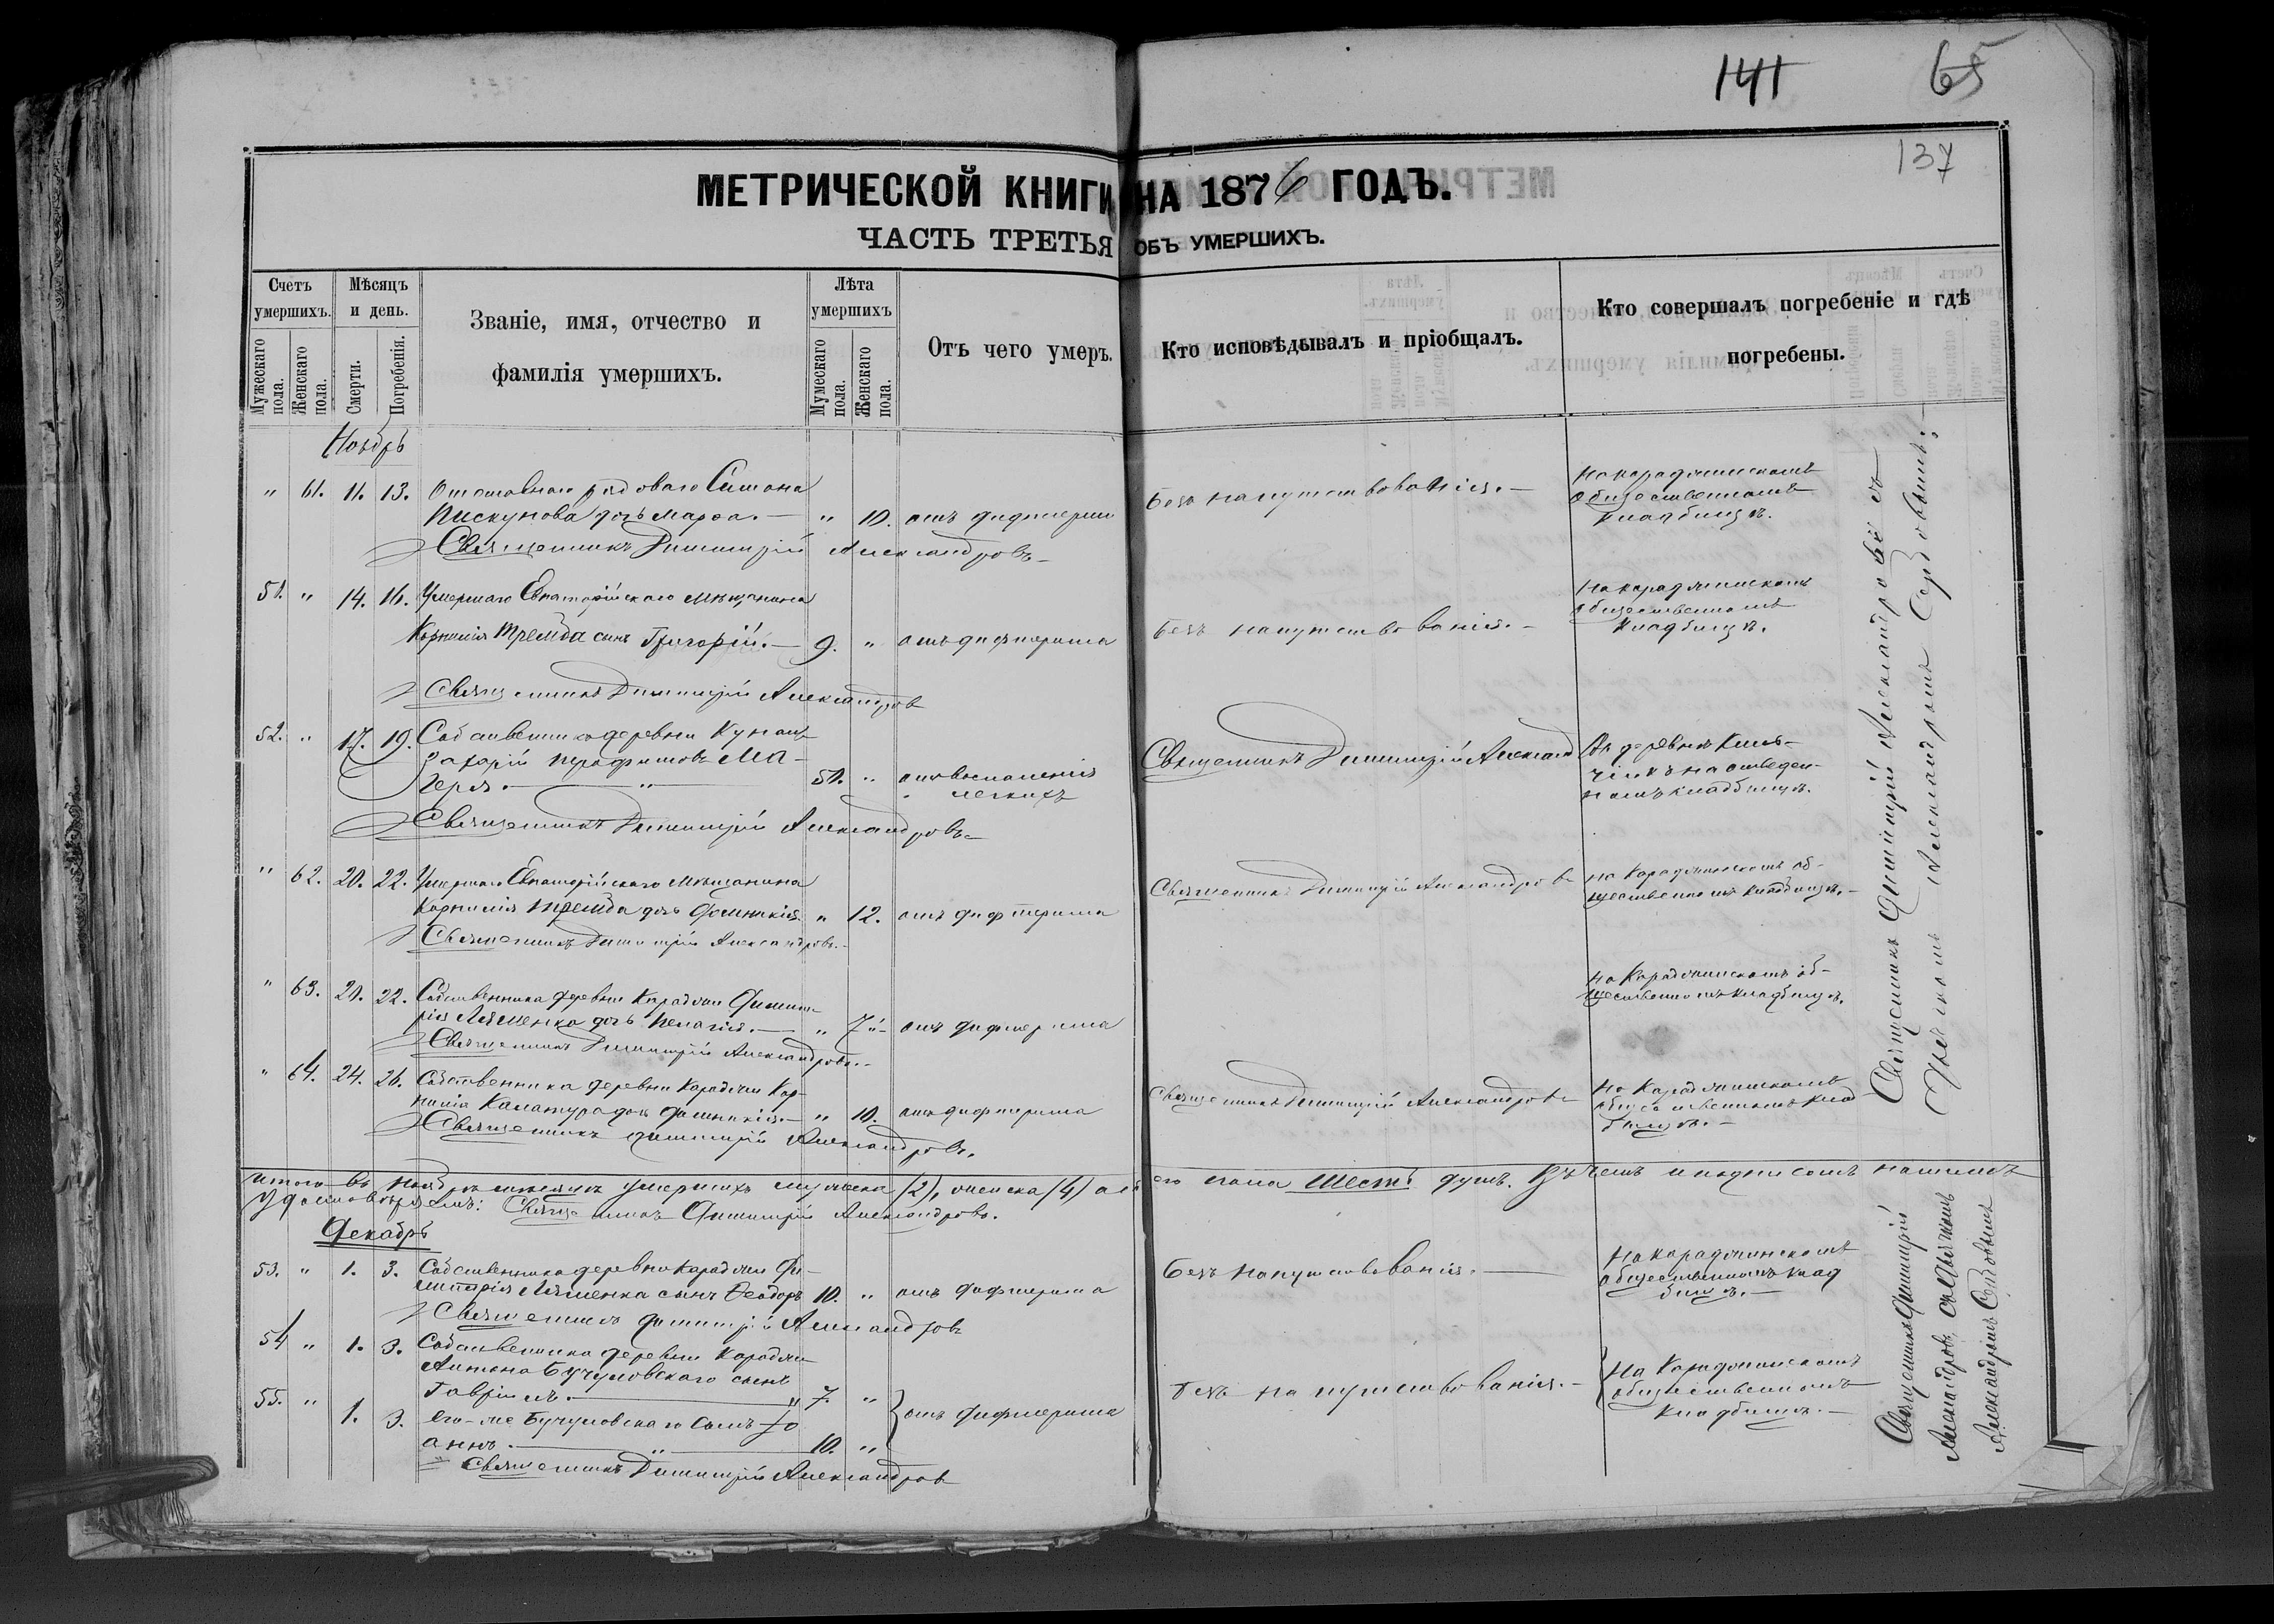 141 65
137
МЕТРИЧЕСКОЙ КНИГИ НА 1876 ГОДЪ.
ЧАСТЬ ТРЕТЬЯ ОБЪ УМЕРШИХЪ.
Счетъ умершихъ.
Мужескаго пола.
Женскаго пола.
Мѣсяцъ и день.
Смерти.
Погребенія.
Званіе, имя, отчество и
фамилія умершихъ.
Лѣта умершихъ
Мужескаго пола.
Женскаго пола.
Отъ чего умеръ.
Кто исповѣдывалъ и пріобщалъ.
Кто совершалъ погребеніе и гдѣ
погребены.
Ноябрь
" 61. 11. 13. Отставнаго рядоваго Симона
Пискунова дочь Марѳа. — " 10. отъ дифтерии
Безъ напутствованія. —
На Караджинскомъ
общественномъ
кладбищѣ.
Священникъ Димитрій Александровъ
51. " 14. 16. Умершаго Евпаторійскаго мѣщанина
Корнилія Тремба сынъ Григорій. — 9. " отъ дифтерита
Безъ напутствованія. —
На Караджинскомъ
общественномъ
кладбищѣ.
Священникъ Димитрій Александров
52. " 17. 19. Собственникъ деревни
Захарій
51. " отъ воспаленія
легкихъ
Священникъ Димитрій Александ
Въ деревнѣ
на отведен-
номъ кладбищѣ.
Священникъ Димитрій Александровъ
" 62. 20. 22. Умершаго Евпаторійскаго мѣщанина
Корнилія Тремба дочь Фотинія " 12. отъ дифтерита
Священникъ Димитрій Александровъ
на Караджинскомъ об-
щественномъ кладбищѣ. —
Священникъ Димитрій Александровъ. —
" 63. 20. 22. Собственника деревни Караджи Димит-
рія Ляшенка дочь Пелагія. — " 7. отъ дифтерита
на Караджинскомъ об-
щественномъ кладбищѣ.
Священникъ Димитрій Александровъ. —
" 64. 24. 26. Собственника деревни Караджи Кор-
нилія дочь — " 10. отъ дифтерита
Священникъ Димитрій Александровъ
На Караджинскомъ
общественномъ клад-
бищѣ. —
Священникъ Димитрій Александровъ.
Итого въ Ноябрѣ мѣсяцѣ умершихъ мужеска (2), женска (4) а обоего пола Шесть душъ. въ чемъ и подписомъ нашимъ
удостовѣряемъ: Священникъ Димитрій Александровъ.
Декабрь
53. " 1. 3. Собственника деревни Караджи Ди-
митрія Ляшенка сынъ Ѳеодоръ 10. " отъ дифтерита
Безъ напутствованія. —
На Караджинскомъ
общественномъ клад
бищѣ. —
Священникъ Димитрій Александровъ
54 " 1. 3. Собственника деревни Караджи
Антона Бучуловскаго сынъ
Гавріилъ. — 7. "
55. " 1. 3. его-же Бучуловскаго сынъ Іо
аннъ. — 10. "
отъ дифтерита
Безъ напутствованія. —
На Караджинскомъ
общественномъ
кладбищѣ. —
Священникъ Димитрій Александров
Священникъ Димитрій Александровъ съ
Александромъ
Священникъ Димитрій
Александровъ съ
Александромъ